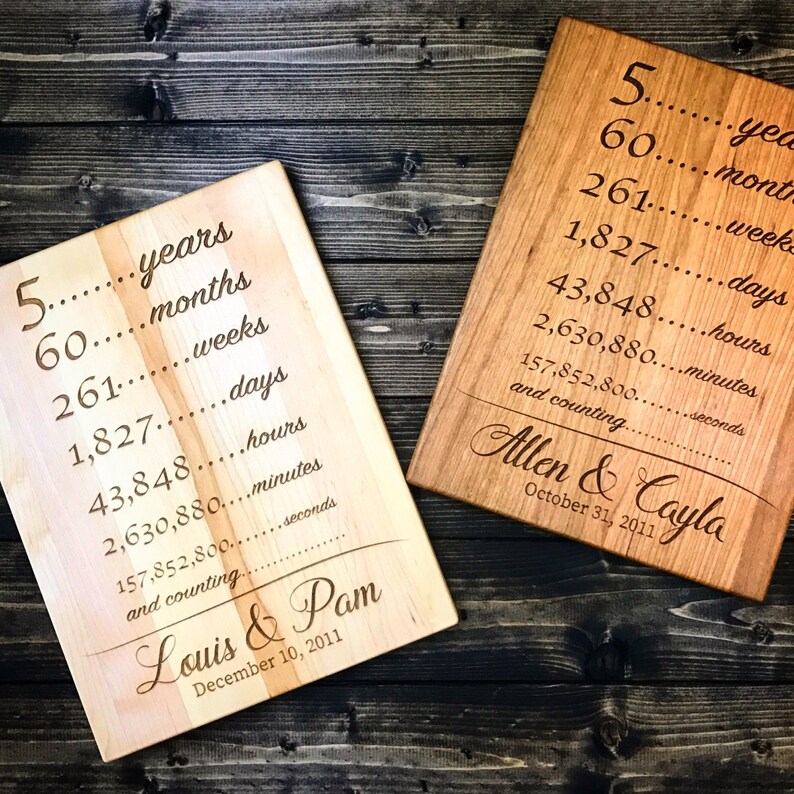 5........years
60......months
261.......weeks
1,827.......days
43,848......hours
2,630,880....minutes
157,852,800........seconds
and counting..................
Louis & Pam
December 10, 2011
5........yea
60......month
261.......weeks
1,827.......days
43,848......hours
2,630,880....minutes
157,852,800........seconds
and counting..................
Allen & Cayla
October 31, 2011